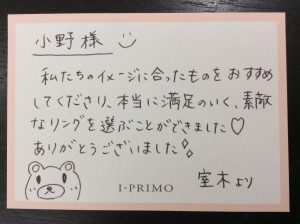 小野様
私たちのイメージに合ったものをおすすめ
してくださり、本当に満足のいく、素敵
なリングを選ぶことができました♡
ありがとうございました
I-PRIMO
室木より